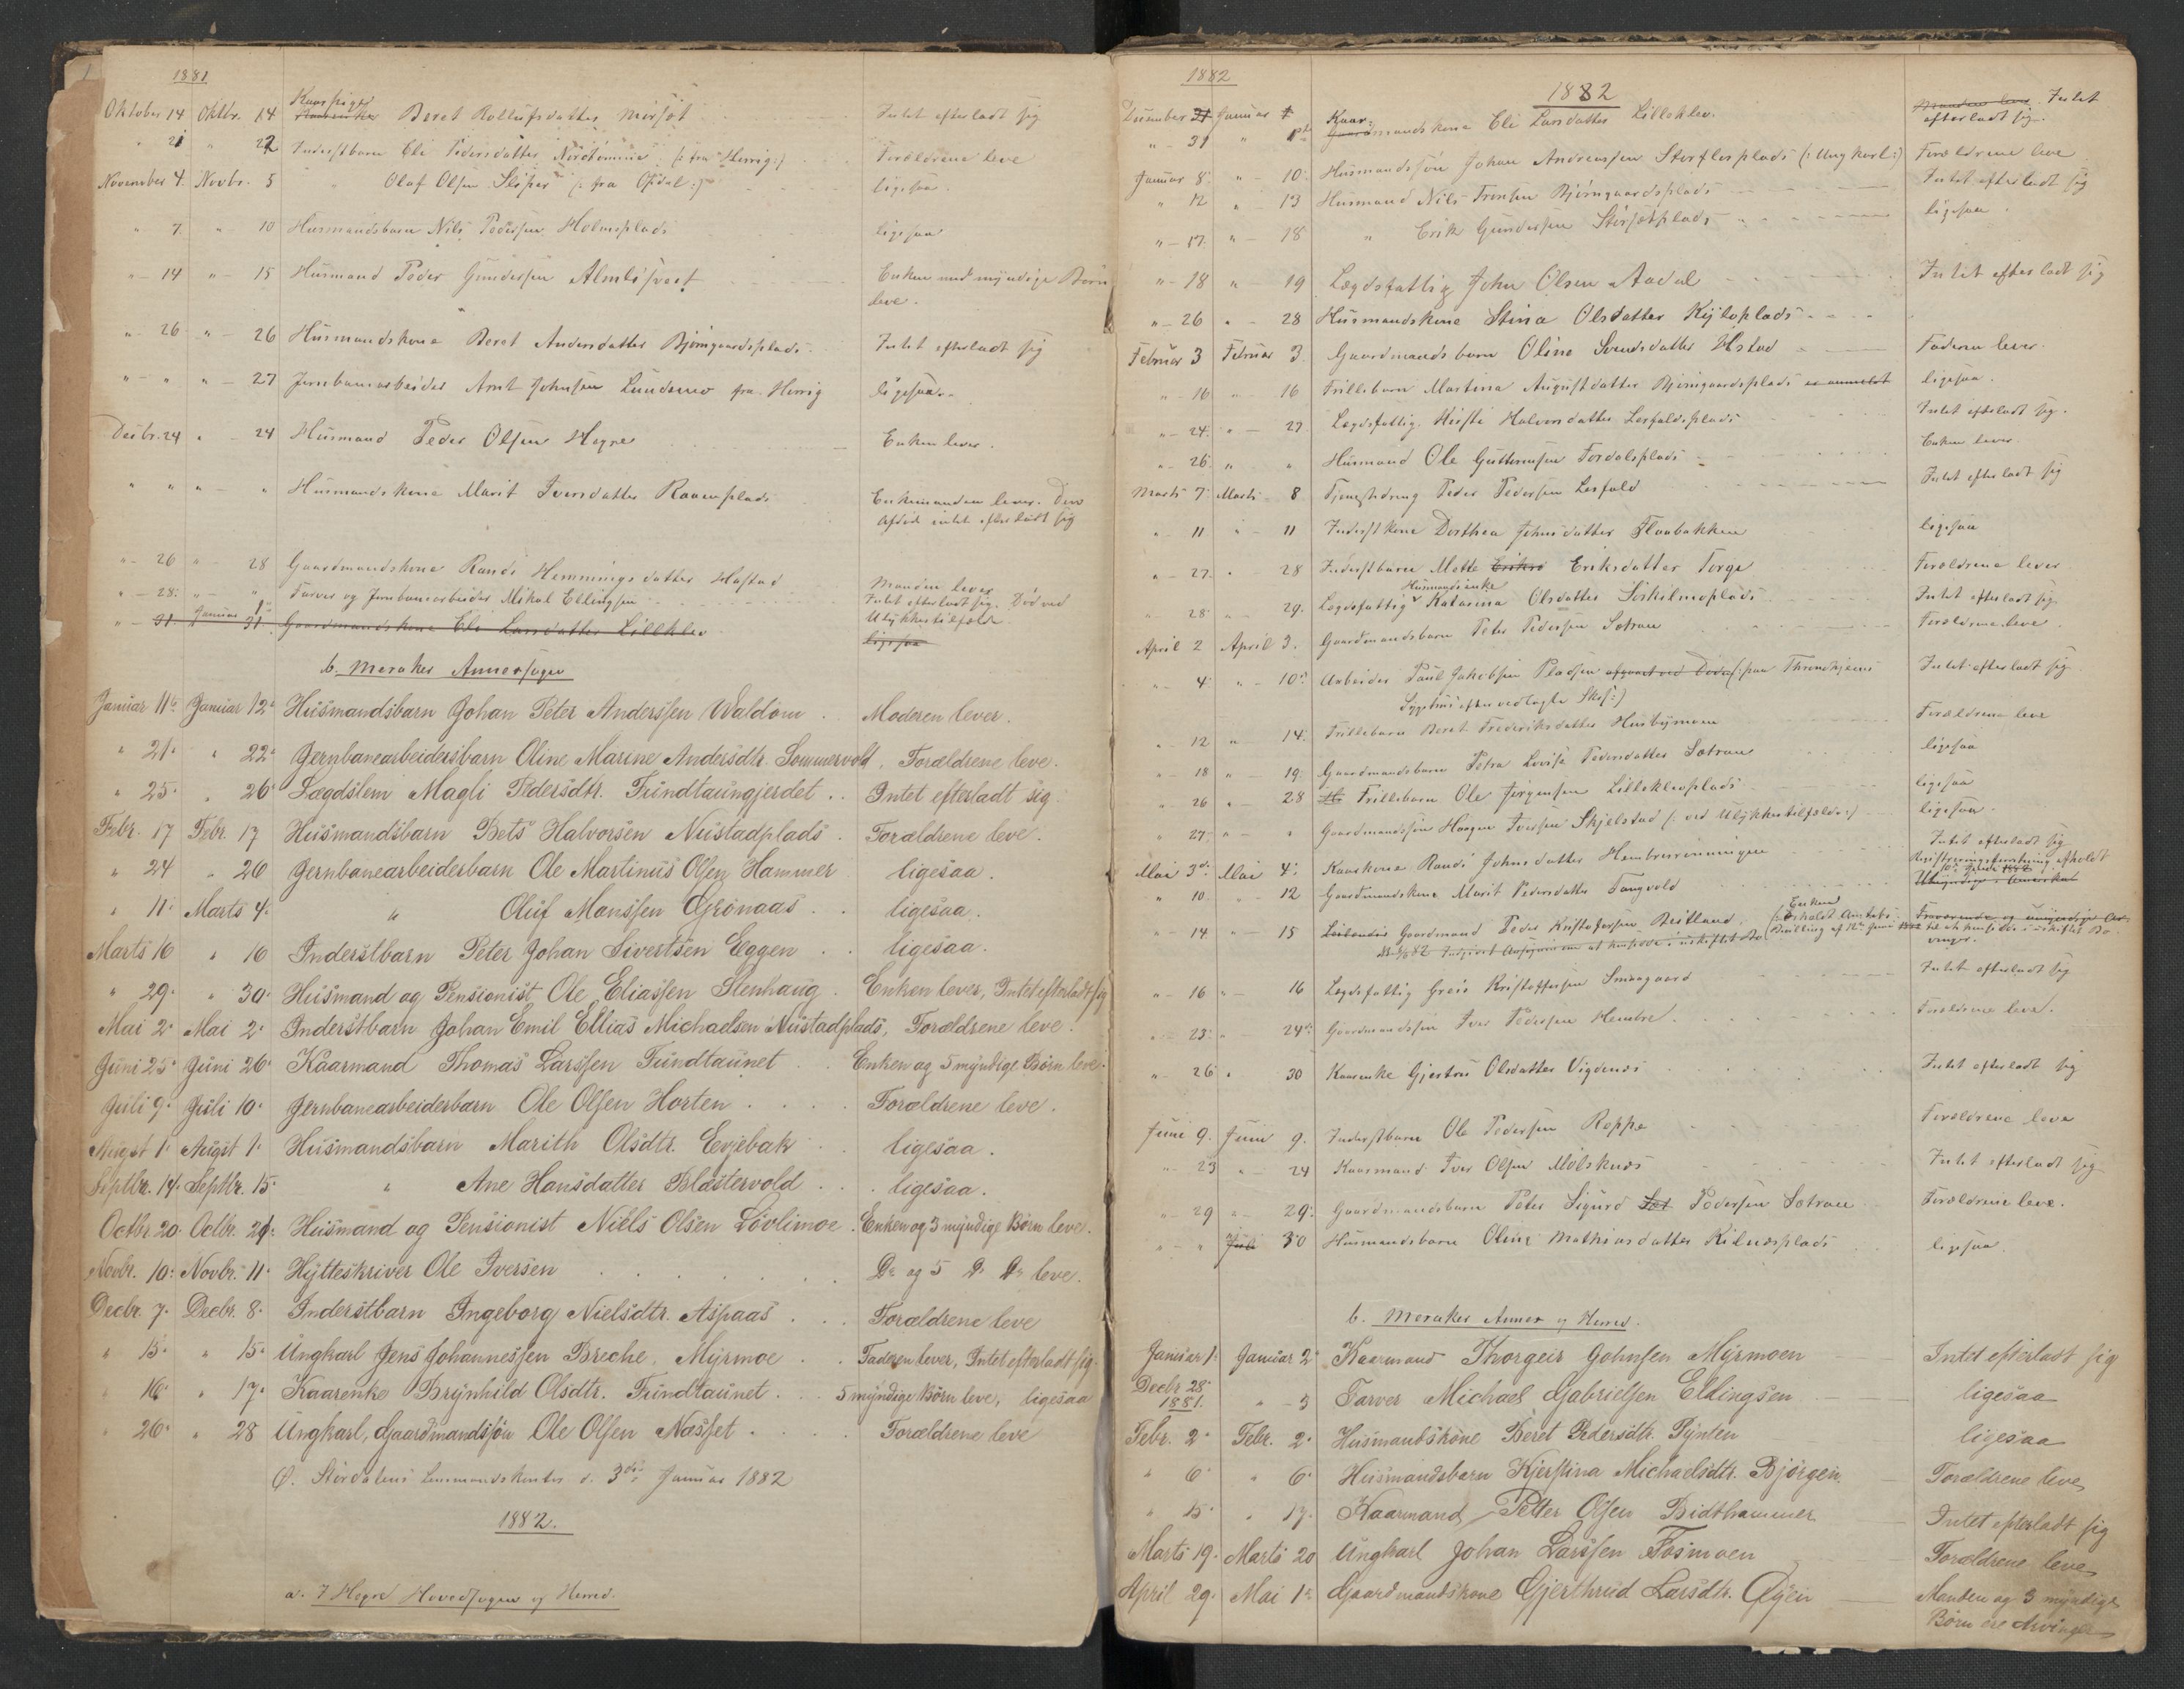 1881
Oktober 14 Oktbr. 14 Kaarpige Beret Rollufsdatter Mörset Intet efterladt sig
" 21 " 22 Inderstbarn Eli Pedersdatter Nordtömme (: fra Horrig :) Forældrene leve
November 4. Novbr. 5 " Olaf Olsen Slöper (: fra Opdal :) ligesaa.
" 7. " 10 Husmandsbarn Nils Pedersen Holmsplads ligesaa
" 14 " 15 Husmand Peder Gundersen Almlisvest Enken med myndige Börn
leve.
" 26 " 26 Husmandskone Beret Andersdatter Björngaardsplads. Intet efterladt sig
" " " 27 Jernbanearbeider Arnt Johnsen Lundemo fra Horrig ligesaa.
Decbr. 24 " 24 Husmand Peder Olsen Hegre Enken lever.
" " " " Husmandskone Marit Iversdatter Raaenplads Enkemanden lever. Den
Afdöde intet efterladt sig
" 26 " 28 Gaardmandskone Randi Hemmingsdatter Hafstad Manden lever
" 28: " " Farver og Jernbanearbeider Mikal Ellingsen Intet efterladt sig. Död ved
Ulykkestilfælde.
" 31. Januar 1 31. Gaardmandskone Eli Larsdatter Lilleklev ligesaa
b. Meraker Annexsogn
Januar 11te Januar 12te Husmandsbarn Johan Peter Anderssen Waldom. Moderen lever.
" 21. " 22. Jernbanearbeidersbarn Oline Marine Andersdtr. Sommervold. Forældrene leve.
" 25. " 26. Lægdslem Magli Pedersdtr. Fundtaungjerdet. Intet efterladt sig.
Febr. 17 Febr. 17 Husmandsbarn Bets Halvorsen Nustadplads. Forældrene leve.
" 24 " 26 Jernbanearbeiderbarn Ole Martinus Olsen Hammer ligesaa.
" 11. Marts 4. " Oluf Monssen Grönaas. ligesaa.
Marts 16 " 16 Inderstbarn Peter Johan Sivertsen Eggen ligesaa.
" 29. " 30. Husmand og Pensionist Ole Eliassen Stenhaug. Enken lever, Intet efterladt sig
Mai 2. Mai 2. Inderstbarn Johan Emil Ellias Michaelsen Nustadplads, Forældrene leve.
Juni 25. Juni 26. Kaarmand Thomas Larssen Fundtaunet Enken og 5 myndige Börn leve.
Juli 9. Juli 10. Jernbanearbeiderbarn Ole Olsen Horten Forældrene leve.
August 1. August 1. Husmandsbarn Marith Olsdtr. Evjebak ligesaa.
Septbr. 14. Septbr. 15. " Ane Hansdatter Blæstervold ligesaa.
Octbr. 20. Octbr. 21. Husmand og Pensionist Niels Olsen Lövlimoe. Enken og 3 myndige Börn lever.
Novbr. 10: Novbr. 11. Hytteskriver Ole Iversen Do og 5 Do Do leve.
Decbr. 7. Decbr. 8. Inderstbarn Ingeborg Nielsdtr. Aspaas Forældrene leve
" 15. " 15. Ungkarl Jens Johannessen Breche, Myrmoe. Faderen lever, Intet efterladt sig.
" 16. " 17. Kaarenke Brynhild Olsdtr. Fundtaunet. 5 myndige Börn leve, ligesaa
" 26. " 28 Ungkarl, Gaardmandssön Ole Olsen Næsset. Forældrene leve
Ö. Stördalens Lensmandskontor d. 3die Januar 1882
1882.
a. I Hegre Hovedsogn og Herred.
1882
1882
December 31 Januar 1 Kaar: Gaardmandskone Eli Larsdatter Lilleklev. Manden lever Intet
" 31 " 1ste efterladt sig.
Januar 8. " 10. Husmandssön Johan Andreassen Storflorplads (: Ungkarl :) Forældrene leve
" 12 " 13 Husmand Nils Fransen Björngaardsplads Intet efterladt sig
" 17. " 18 " Erik Gundersen Störsetplads ligesaa.
" 18 " 19 Lægdsfattig John Olsen Aadal Intet efterladt sig
" 26 " 28 Husmandskone Stina Olsdatter Kyloplads
Februar 3 Februar 3. Gaardmandsbarn Oline Svendsdatter Ystad Faderen lever.
" 16 " 16 Frillebarn Martina Augustdatter Björngaardsplads er anmeldt ligesaa.
" 24. " 27 Lægdsfattig Kirsti Halvorsdatter Lerfaldsplads Intet efterladt sig.
" 26. " " Husmand Ole Guttormsen Fordalsplads Enken lever.
Marts 7. Marts 8 Tjenestedreng Peder Pedersen Lerfald Intet efterladt sig
" 11 " 11 Inderstkone Dorthea Johnsdatter Flaabakken ligesaa
" 27. " 28 Inderstbarn Mette Eriksdatter Torge Forældrene lever
" 28 " 29. Lægdsfattig Husmandsenke Katarina Olsdatter Sirkilmoplads Intet efterladt sig
April 2 April 3. Gaardmandsbarn Peter Pedersen Sotrau Forældrene leve.
" 4. " 10. Arbeider Paul Jakobsen Pladsen (: paa Throndhjems Intet efterladt sig.
Sygehus efter vedlagte Skr. :)
" 12 " 14. Frillebarn Beret Frederiksdatter Husbymoen Forældrene leve
" 18 " 19. Gaardmandsbarn Petra Lovise Pedersdatter Sotrau ligesaa
" 26 " 28 Frillebarn Ole Jörgensen Lilleklevplads ligesaa
" 27. " " Gaardmandssön Haagen Iversen Skjelstad (: ved Ulykkestilfælde :) ligesaa.
Mai 3die Mai 4. Kaarkone Randi Johnsdatter Hembresrönningen Intet efterladt sig
" 10 " 12 Gaardmandskone Marit Pedersdatter Tangvold Registreringsforretning afholdt
10. Juni 1882
" 14 " 15 Gaardmand Peder Kristofersen Reitland. (: Enken erholdt Amtets
Bevilling af 12te Juni 1882 til at hensidde i uskiftet Bo
" 16 " 16 Lægdsfattig Greis Kristoffersen Smaagaard Intet efterladt sig
" 23. " 24. Gaardmandssön Iver Pedersen Hembre. Forældrene leve.
" 26 " 30 Kaarenke Gjertru Olsdatter Vigdenes Intet efterladt sig
Juni 9. Juni 9. Inderstbarn Ole Pedersen Roppe Forældrene leve
" 23 " 24 Kaarmand Iver Olsen Mölsknes Intet efterladt sig
" 29 " 29. Gaardmandsbarn Peter Sigurd Sot Pedersen Sotrau Forældrene leve.
" " Juli 30 Husmandsbarn Oline Mathiasdatter Kilnesplads ligesaa.
b. Meraker Annex og Herred.
Januar 1. Januar 2. Kaarmand Thorgeir Johnsen Myrmoen Intet efterladt sig
Decbr 28. 1881. " 3 Farver Michael Gabrielsen Ellingsen ligesaa
Febr. 2. Febr. 2. Husmandskone Beret Pedersdtr. Pynten ligesaa
" 6. " 6. Husmandsbarn Kjerstina Michaelsdtr. Björgen. Forældrene leve
" 15. " 17. Kaarmand Petter Olsen Bidthammer Intet efterladt sig
Marts 19. Marts 20 Ungkarl Johan Larssen Fosmoen Forældrene leve
April 29. Mai 1. Gaardmandskone Gjerthrud Larsdtr. Øyen Manden og 3 myndige
Börn ere Arvinger